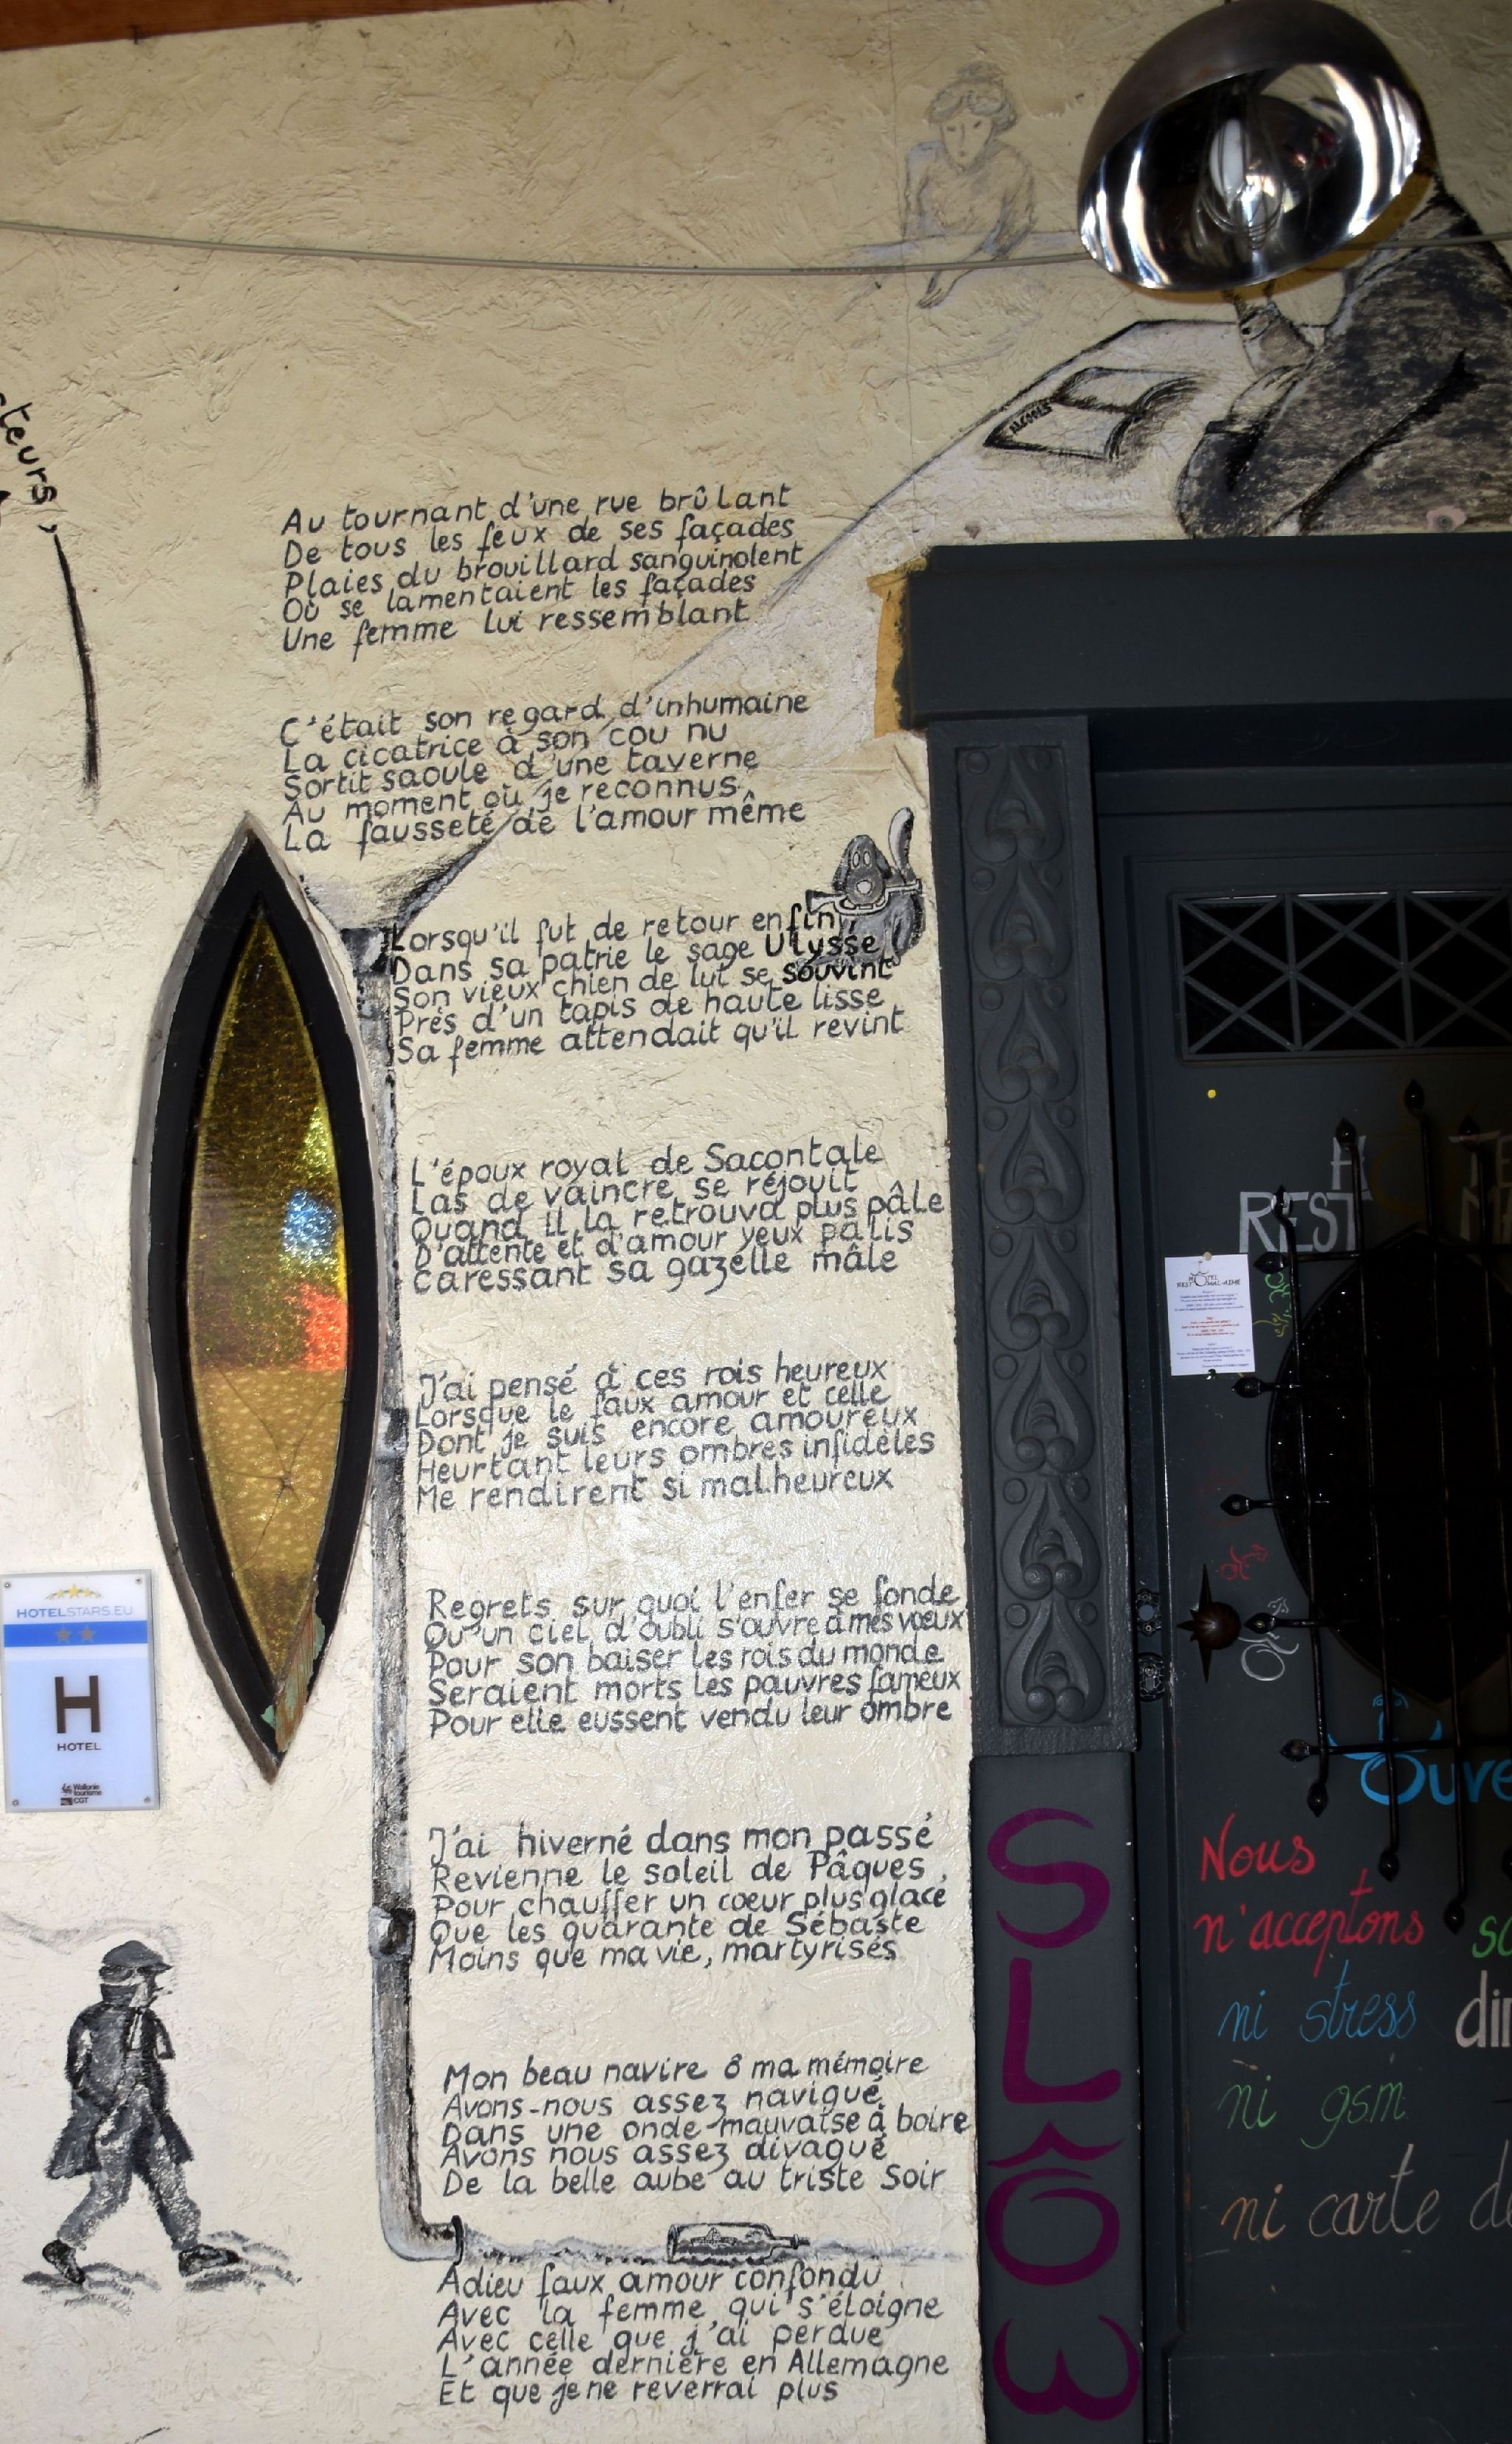 cteurs,
ALCOOLS
Au tournant d'une rue brûlant
De tous les feux de ses façades
Plaies du brouillard sanguinolent
Où se lamentaient les façades
Une femme lui ressemblant
C'était son regard d'inhumaine
La cicatrice à son cou nu
Sortit saoule d'une taverne
Au moment où je reconnus
La fausseté de l'amour même
Lorsqu'il fut de retour enfin
Dans sa patrie le sage Ulysse
Son vieux chien de lui se souvint
Près d'un tapis de haute lisse
Sa femme attendait qu'il revint
L'époux royal de Sacontale
Las de vaincre se réjouit
Quand il la retrouva plus pâle
D'attente et d'amour yeux pâlis
Caressant sa gazelle mâle
J'ai pensé à ces rois heureux
Lorsque le faux amour et celle
Dont je suis encore amoureux
Heurtant leurs ombres infidèles
Me rendirent si malheureux
Regrets sur quoi l'enfer se fonde
Qu'un ciel d'oubli s'ouvre à mes vœux
Pour son baiser les rois du monde
Seraient morts les pauvres fameux
Pour elle eussent vendu leur ombre
J'ai hiverné dans mon passé
Revienne le soleil de Pâques
Pour chauffer un coeur plus glacé
Que les quarante de Sébaste
Moins que ma vie, martyrisés
Mon beau navire ô ma mémoire
Avons-nous assez navigué
Dans une onde mauvaise à boire
Avons nous assez divagué
De la belle aube au triste soir
Adieu faux amour confondu
Avec la femme qui s'éloigne
Avec celle que j'ai perdue
L'année dernière en Allemagne
Et que je ne reverrai plus
HOTELSTARS.EU
H
HOTEL
Wallonie
tourisme
CGT
H TE
REST M
HÔTEL
REST MAL-AIMÉ
Ouve
Nous
n'acceptons
ni stress
ni gsm
ni carte de
so
din
SLOW